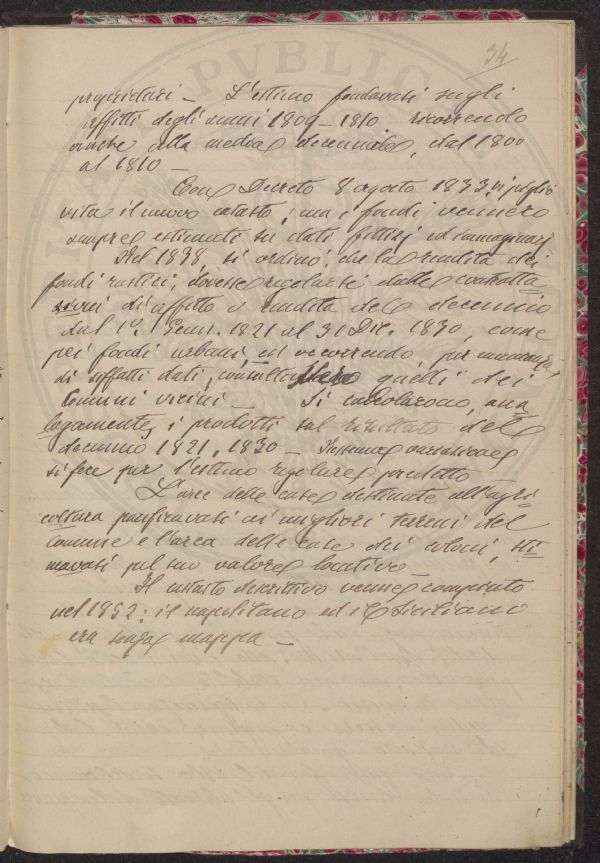 34
proprietari — L'estimo fondavasi sugli
affitti degli anni 1809–1810 ricorrendo
anche alla media decennale, dal 1800
al 1810 —
Con Decreto 8 agosto 1833 si
il nuovo catasto; ma i fondi vennero
sempre estimati su dati fittizj ed immaginarj
Nel 1838 si ordinò, che la rendita dei
fondi rustici, dovesse regolarsi dalle contratta
zioni di affitto o rendita del decennio
dal 1º. Genn. 1821 al 31 Dic. 1830, come
pei fondi urbani, ed occorrendo, per mancanza
di siffatti dati, quelli dei
Comuni vicini — Si calcolarono, ana
logamente, i prodotti sul risultato del
decennio 1821, 1830 — Nessuna variazione
si fece per l'estimo regolare predetto
L'area delle case destinate all'agri
coltura parificavasi ai migliori terreni del
comune e l'area delle case dei coloni, sti
mavasi pel suo valore locativo —
Il catasto descrittivo venne compiuto
nel 1852: il napolitano ed il Siciliano
era senza mappa —
PVBLIC